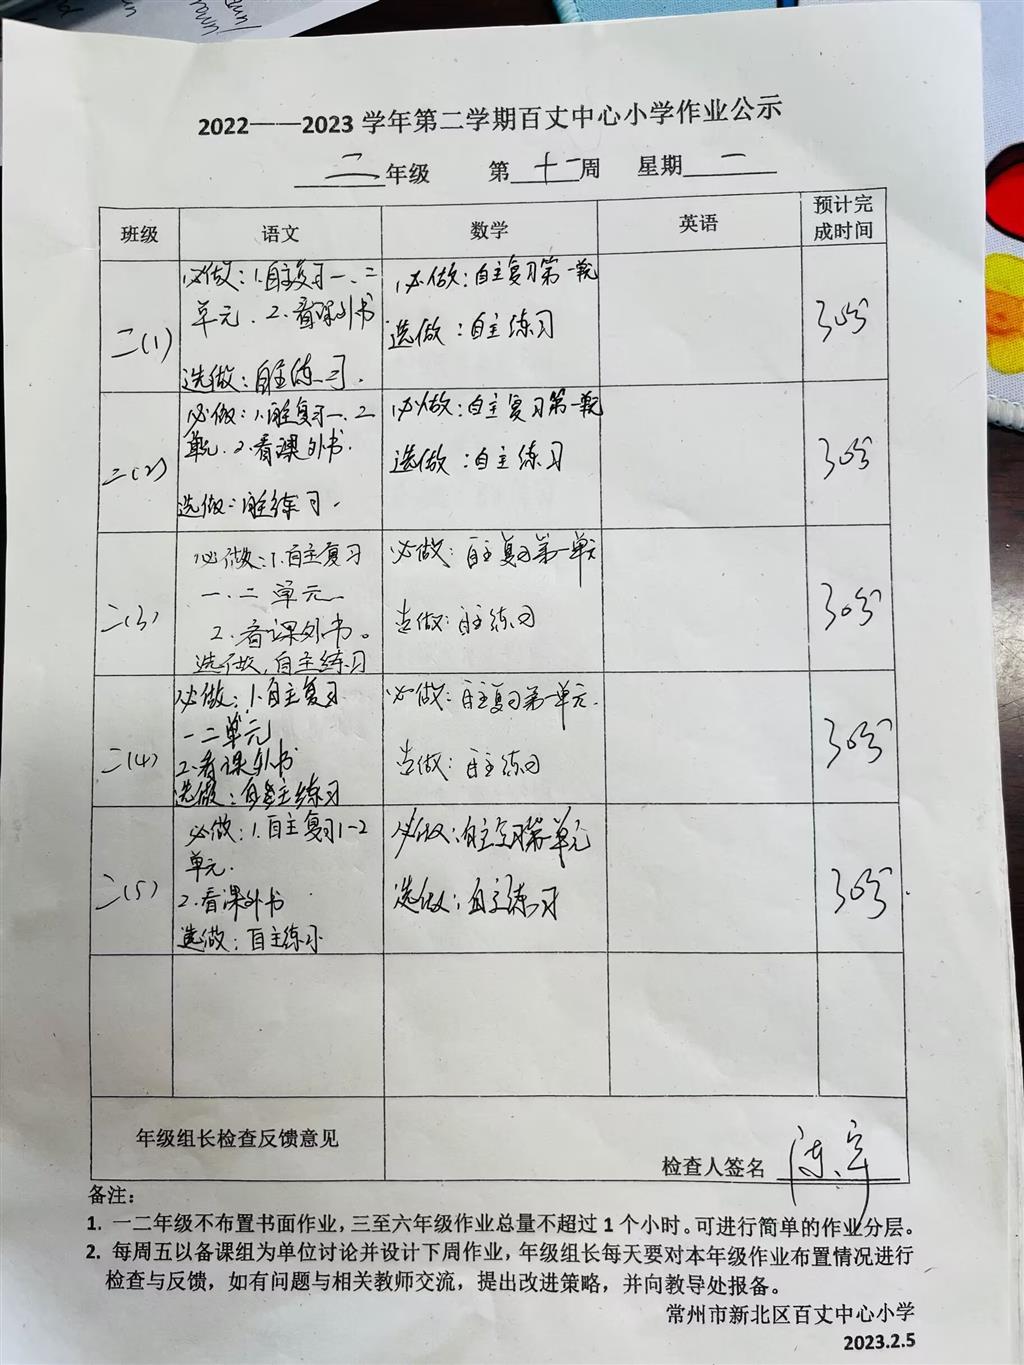 2022——2023 学年第二学期百丈中心小学作业公示
二年级 第十一周 星期二
班级 语文 数学 英语 预计完成时间
二(1)
必做：1.自主复习一、二
单元.2.看课外书
选做：自主练习.
必做：自主复习第一单元
选做：自主练习
30分
二(2)
必做：1.自主复习一、二
单元.2.看课外书.
选做：自主练习.
必做：自主复习第一单元
选做：自主练习
30分
二(3)
必做：1.自主复习
一、二单元
2.看课外书。
选做：自主练习
必做：自主复习第一单元
选做：自主练习
30分
二(4)
必做：1.自主复习
一二单元
2.看课外书
选做：自主练习
必做：自主复习第一单元.
选做：自主练习
30分
二(5)
必做：1.自主复习1-2
单元.
2.看课外书
选做：自主练习
必做：自主复习第一单元
选做：自主练习
30分.
年级组长检查反馈意见
检查人签名
备注：
1. 一二年级不布置书面作业，三至六年级作业总量不超过 1 个小时。可进行简单的作业分层。
2. 每周五以备课组为单位讨论并设计下周作业，年级组长每天要对本年级作业布置情况进行
检查与反馈，如有问题与相关教师交流，提出改进策略，并向教导处报备。
常州市新北区百丈中心小学
2023.2.5